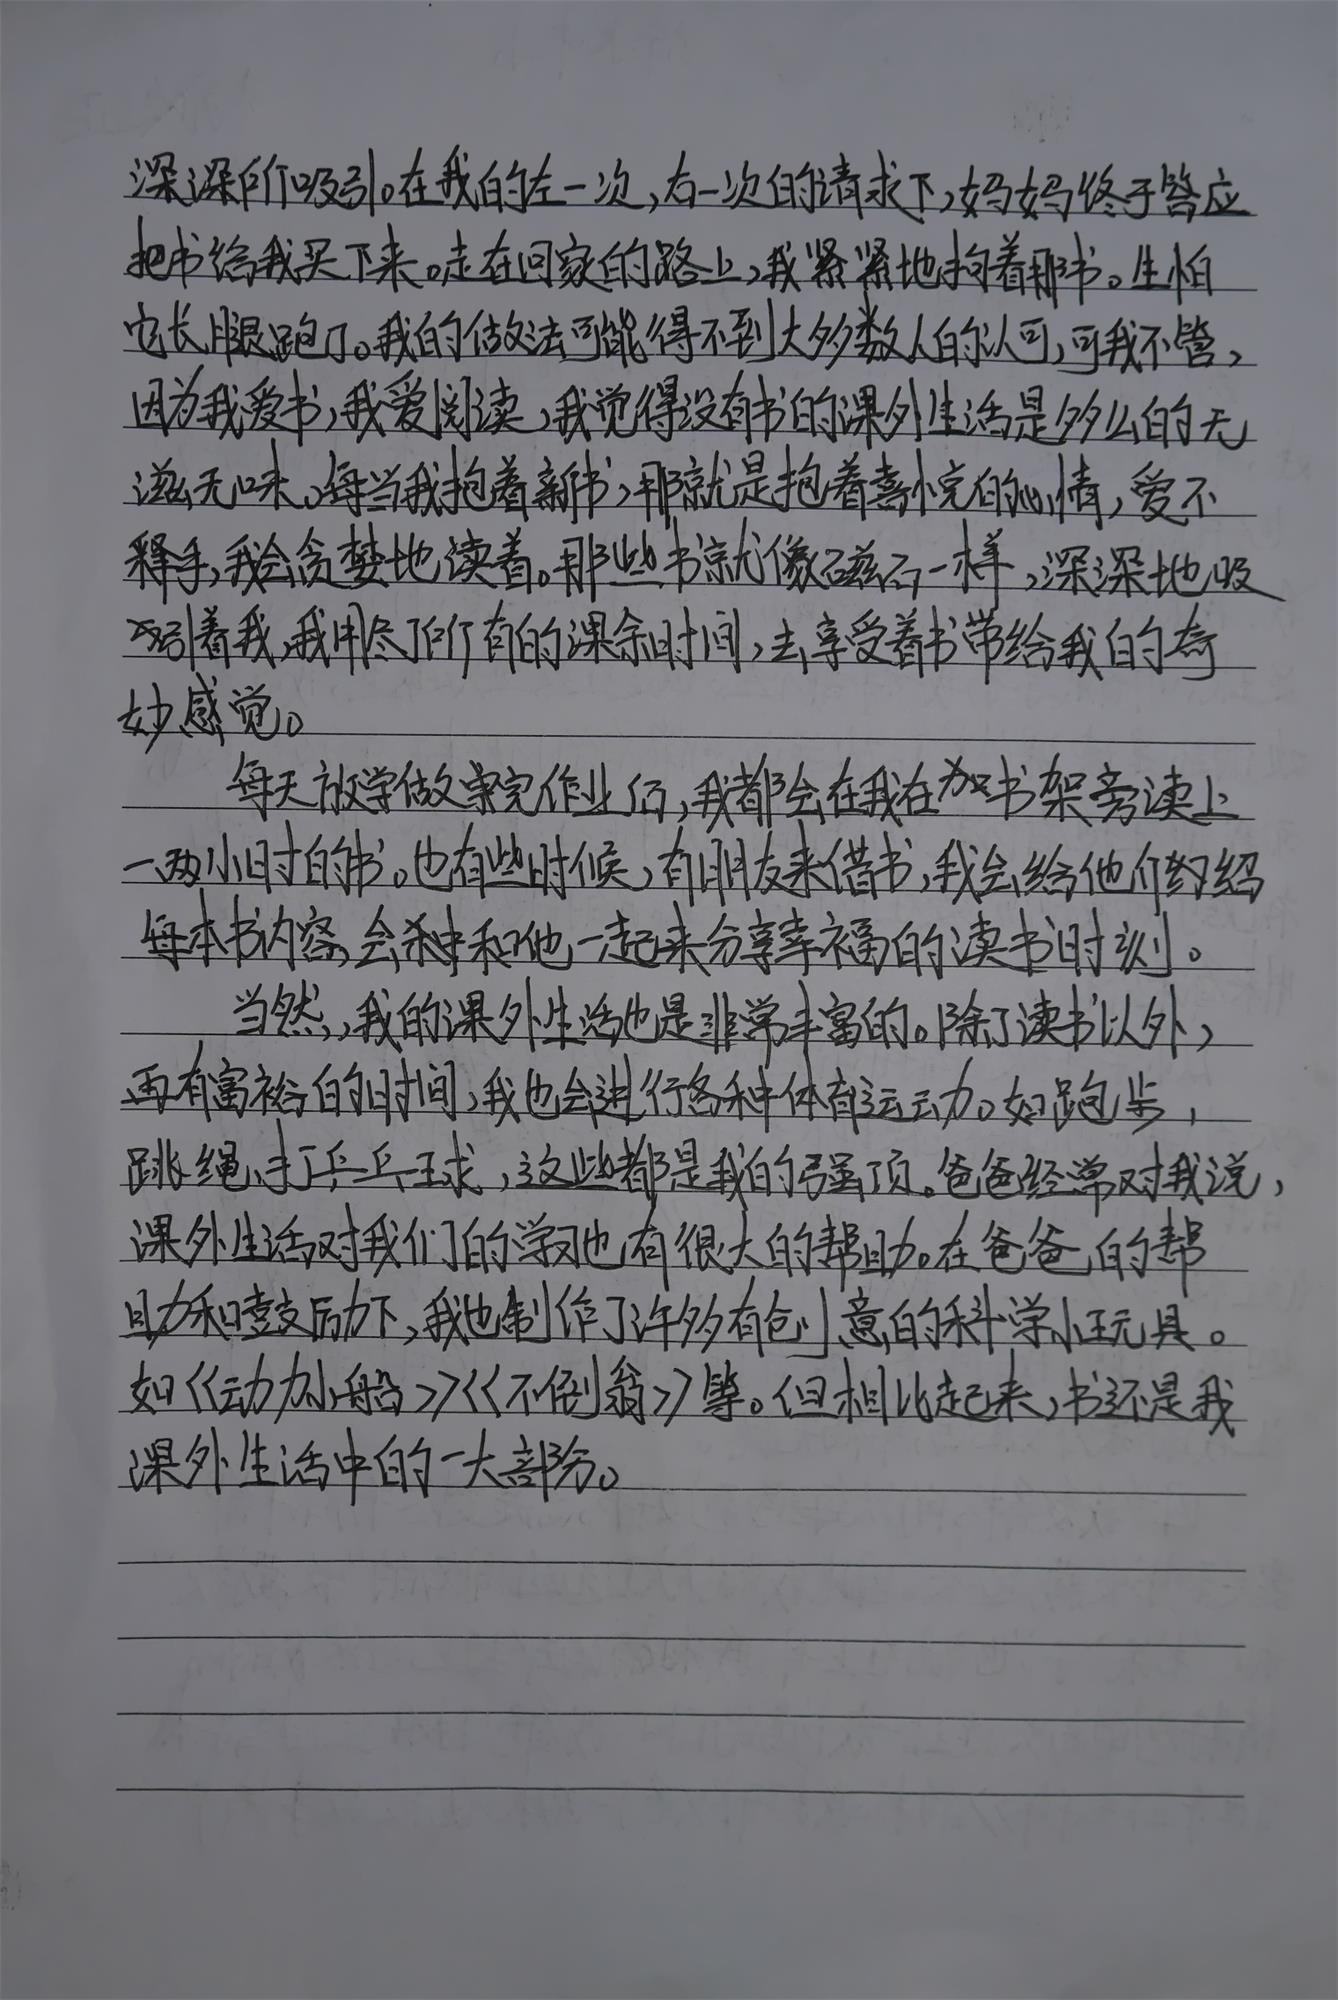 深深所吸引。在我的左一次,右一次的请求下,妈妈终于答应
把书给我买下来。走在回家的路上,我紧紧地抱着那书。生怕
它长腿跑了。我的做法可能得不到大多数人的认可,可我不管,
因为我爱书,我爱阅读,我觉得没有书的课外生活是多么的无
滋无味。每当我抱着新书,那就是抱着喜悦的心情,爱不
释手,我会贪婪地读着。那些书就像磁石一样,深深地吸
引着我,我用尽了所有的课余时间,去享受着书带给我的奇
妙感觉。
每天放学做完作业后,我都会在我在书架旁读上
一两小时的书。也有些时候,有朋友来借书,我会给他介绍
每本书内容,会和他一起来分享幸福的读书时刻。
当然,,我的课外生活也是非常丰富的。除了读书以外,
再有富裕的时间,我也会进行各种体育运动。如跑步,
跳绳,打乒乓球,这些都是我的强项。爸爸经常对我说,
课外生活对我们的学习也有很大的帮助。在爸爸的帮
助和鼓励下,我也制作了许多有创意的科学小玩具。
如《动力小船》《不倒翁》等。但相比起来,书还是我
课外生活中的一大部分。